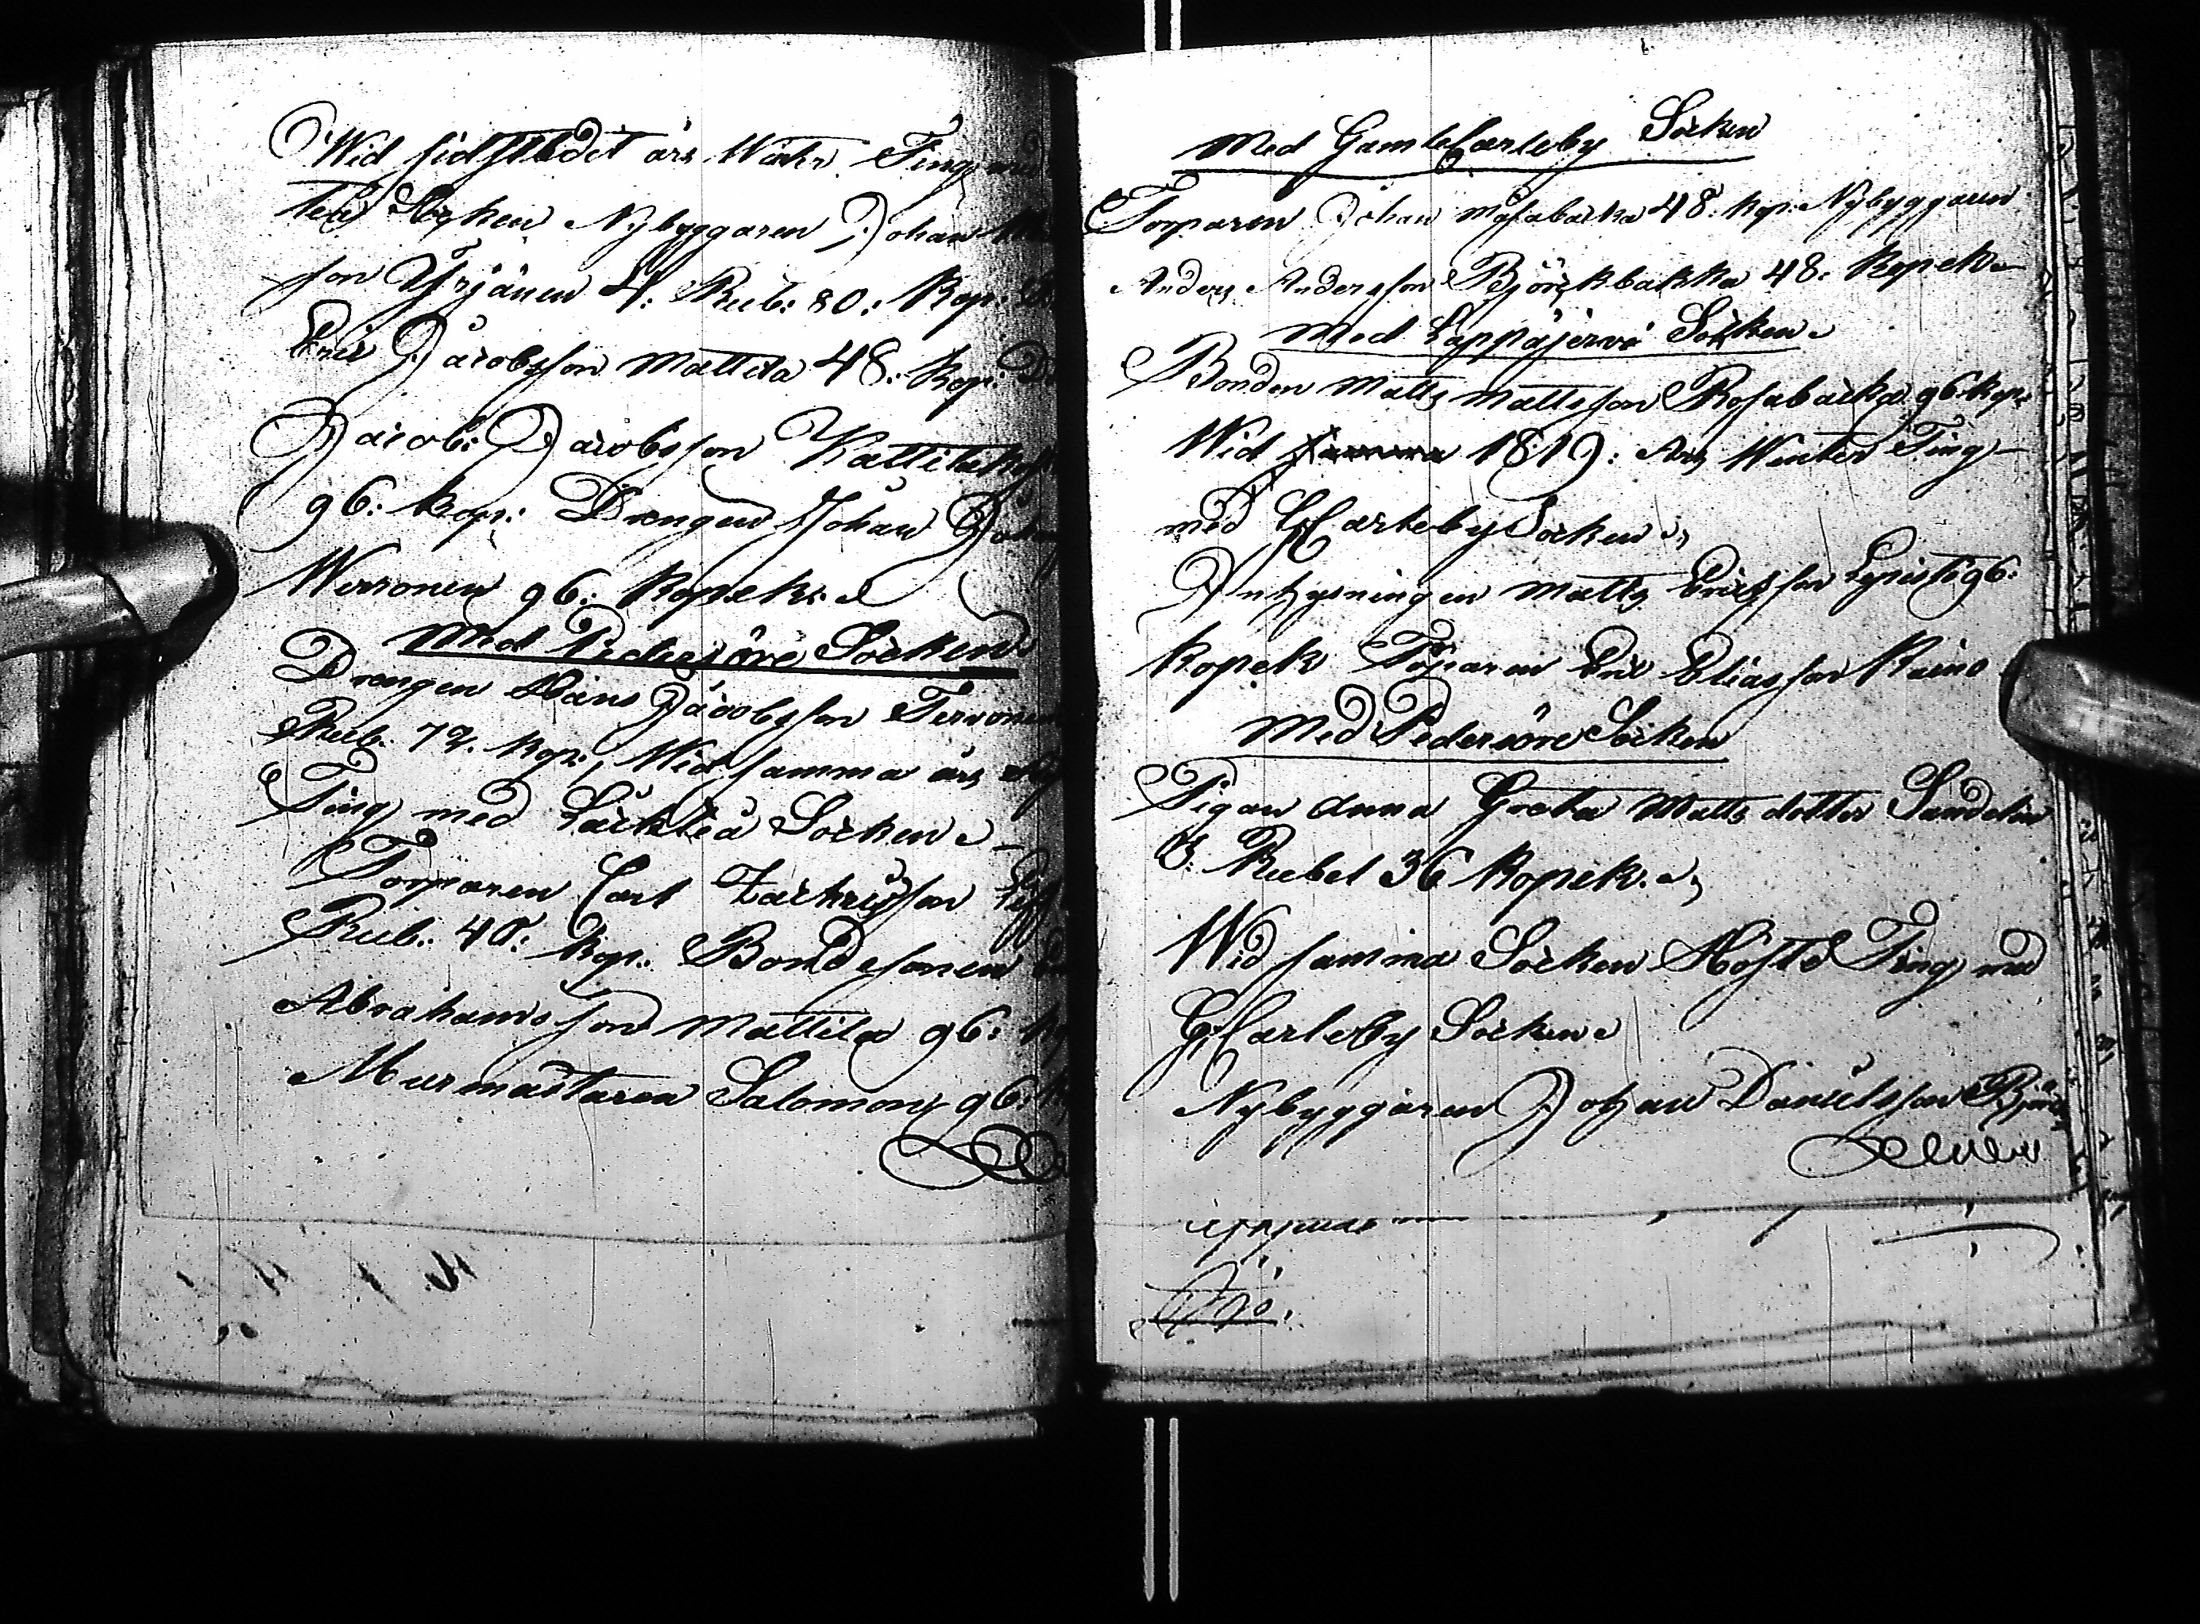 Wid sidstledit års Winter Ting
Socken Nybyggaren Johan
son Yrjänen 4: Rub: 80: Kop:
Eric Jacobsson Mattila 48: Kop:
Jacob: Jacobsson Kattilakos
96: Kop: Drengen Johan
Wirronen 96: Kopek:
Med Pedersöre Socken
Drengen Hans Jacobsson Tervonen
Rub: 72. Kop: Wid samma års
Ting med Lochteå Socken
Torparen Carl Zachrisson
Rub: 48: Kop: Bondesonen
Abrahamsson Mattila 96:
Murmästaren Salomon 96:
Med GamleCarleby Socken
Torparen Johan Mosabacka 48: Kop: Nybyggaren
Anders Andersson Björkbacka 48: Kopek
Med Lappajervi Socken
Bonden Matts Mattsson Rosabacka 96 Kop:
Wid samma 1819: Ars Winter Ting
med GCarleby Socken
Inhysningen Matts Ericsson Lepistö 96:
Kopek Torparen Eric Eliasson Raino
Med Pedersöre Socken
Pigan Anna Greta Matts dotter Sandelin
3. Rubel 36 Kopek.
Wid samma Socken Höste Ting med
GCarleby Socken
Nybyggaren Johan Danielsson Björk